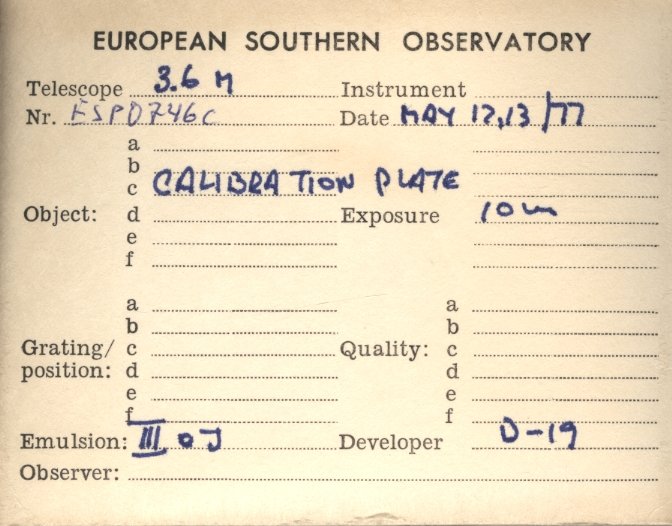 EUROPEAN SOUTHERN OBSERVATORY
Telescope 3.6 M Instrument
Nr. ESP0746C Date MAY 12,13/77
a
b
c CALIBRATION PLATE
Object: d Exposure 10m
e
f
a a
b b
Grating/ c Quality: c
position: d d
e e
f f
Emulsion: III a J Developer D-19
Observer: